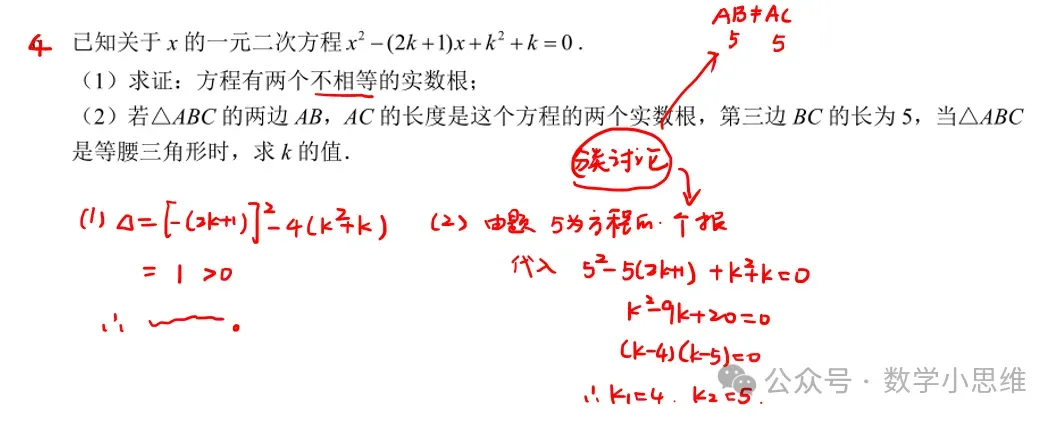 AB≠AC
5 5
4 已知关于 x 的一元二次方程 x²-(2k+1)x+k²+k=0.
（1）求证：方程有两个不相等的实数根；
（2）若△ABC 的两边 AB，AC 的长度是这个方程的两个实数根，第三边 BC 的长为 5，当△ABC
是等腰三角形时，求 k 的值．
分类讨论
(1) Δ=[-(2k+1)]²-4(k²+k)
= 1 >0
∴ 。
(2) 由题 5为方程的一个根
代入 5²-5(2k+1)+k²+k=0
k²-9k+20=0
(k-4)(k-5)=0
∴k₁=4. k₂=5.
公众号·数学小思维